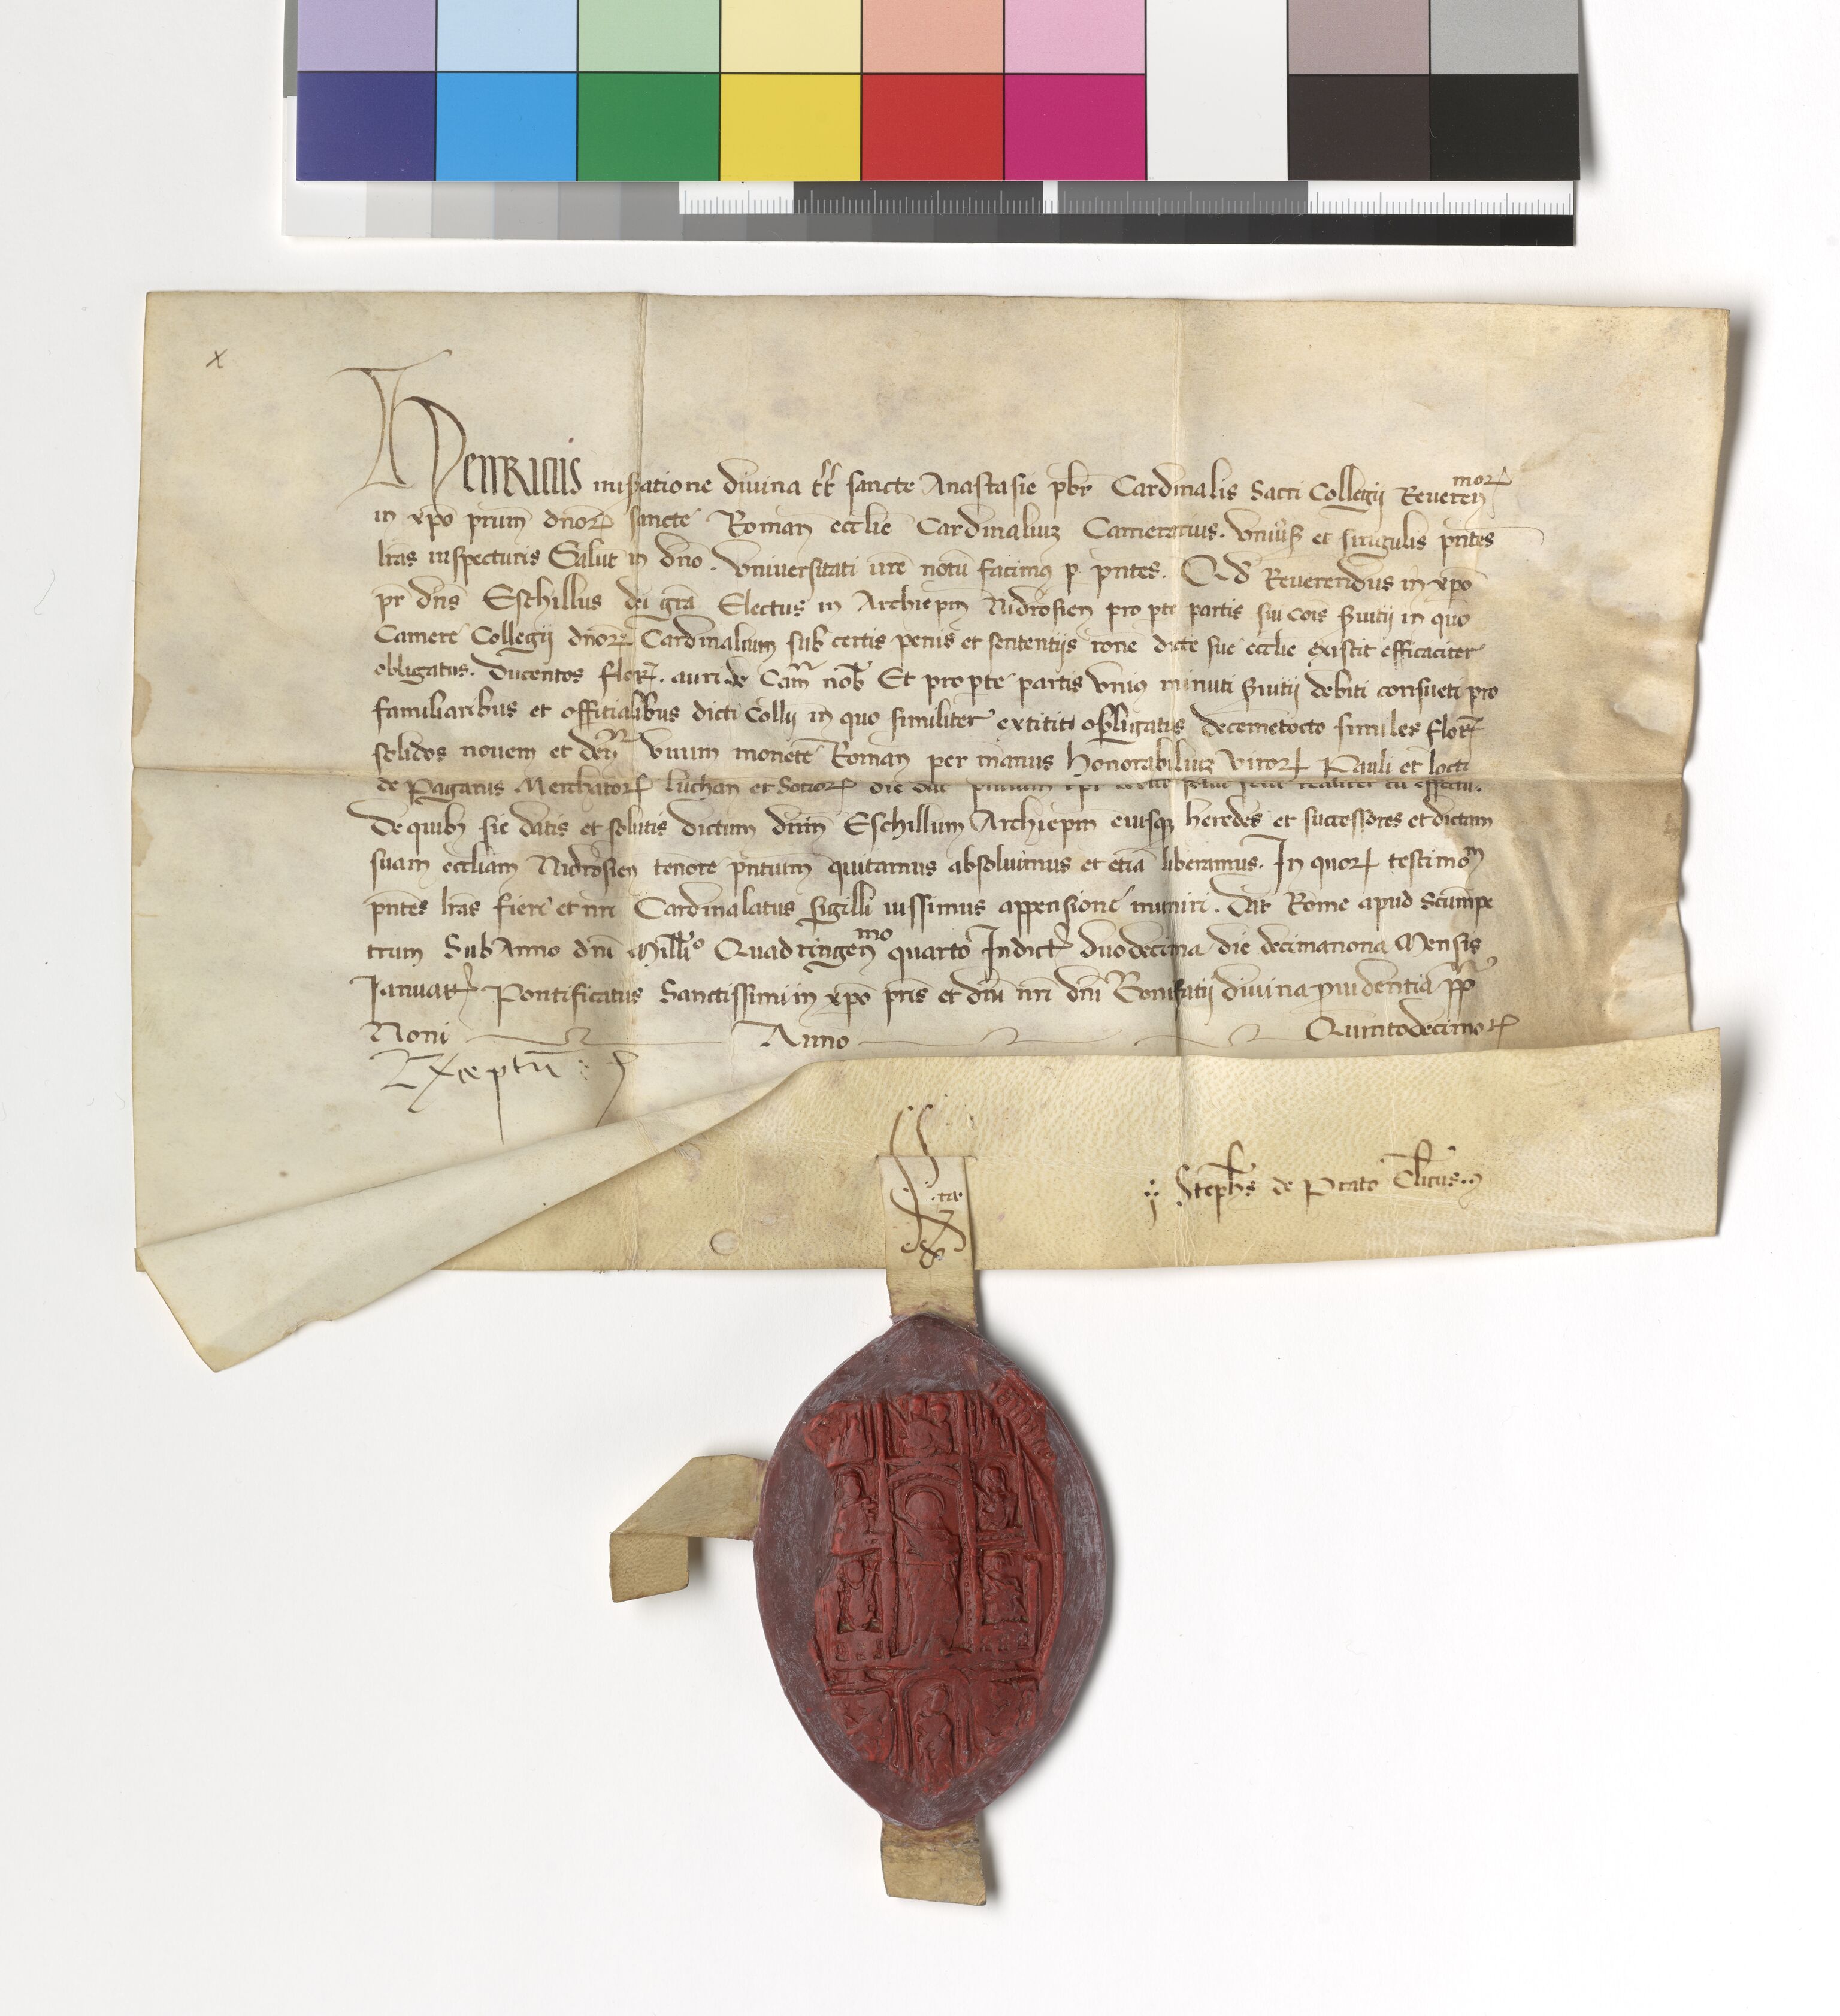 x
Henricus mis̃atione divina tt̃ sancte Anastasie pbr̃ Cardinalis Sacri Collegii Reveren̄ moꝝ
in xp̄o prum̄ dn̄oꝝ sancte Roman̄ eccl̄ie Cardinaliuz Camerarius. Vniu̾ß et singulis pn̄tes
lr̄as inspecturis Salut̄ in dn̄o. Vniversitati vr̄e notū facimꝰ p pn̄tes. Qd̄ Reverendus in xp̄o
pr̄ dn̄s Eschillus dei gr̄a Electus in Archiep̄m Nidrosien̄ pro pte partis sui cōis ẜuitii in quo
Camere Collegii dn̄oꝝ Cardinalium sub certis penis et sententiis rōne dicte sue eccl̄ie existit efficaciter
obligatus. Ducentos flor̄. auri de Cam̄ nob̄ Et pro pte partis vniꝰ minuti ẜuitii debiti consueti pro
familiaribus et offitialibus dicti Coll̄ii in quo similiter extitit obligatus Decemetocto similes flor̄
solidos novem et den̄ vnum monete Roman̄ per manus honorabiliuz viroꝝ Pauli et
de Paganis Mercatoꝝ luchan̄ et Socioꝝ die dat̄ realiter cū effectu.
De quibꝫ sic datis et solutis dictum dn̄m Eschillum Archiep̄m eiusqꝫ heredes et successores et dictam
suam eccl̄iam Nidrosien̄ tenore pn̄tium quitamus absoluimus et etiā liberamus. In quoꝝ testimom̄
pn̄tes lr̄as fieri et nr̄i Cardinalatus Sigilli iussimus appensione muniri. Dat̄ Rome apud Scūmpe
trum Sub Anno dn̄i Mill̄o Quadringen̄mo quarto Indict̄ duodecima die decimanona Mensis
Januar̄ Pontificatus Sanctissimi in xp̄o pr̄is et dn̄i nr̄i dn̄i Bonifatii divina ꝓuidentia pp̄
Noni Anno Quintodecimo
Exceptū
ta
x
Steph̄s de Prato Cl̄icus